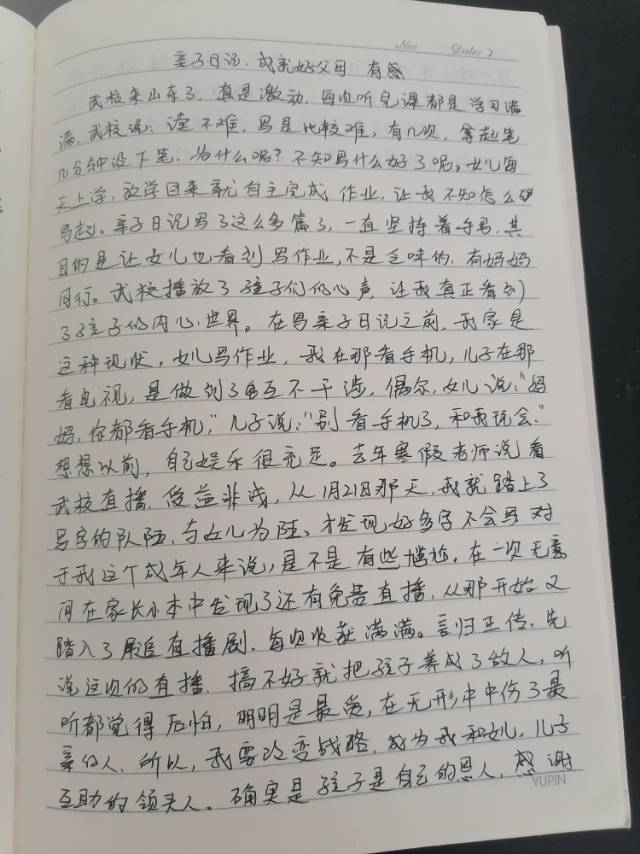 No.
Date
亲子日记,成就好父母 有感
武校来山东了,真是激动,每次听完课都是学习满
满,武校说:读不难,写是比较难,有几次,拿起笔
几分钟没下笔.为什么呢?不知写什么好了呢,女儿每
天上学,放学回来就自主完成 作业,让我不知怎么
写起。亲子日记写了这么多篇了,一直坚持着手写,其
目的是让女儿也看到写作业,不是乏味的,有妈妈
同行。武校播放了孩子们的心声,让我真正看到
了孩子的内心世界。在写亲子日记之前,我家是
这种现状,女儿写作业,我在那看手机,儿子在那
看电视,是做到了互不干涉,偶尔,女儿说:“妈
妈,你都看手机,”儿子说:“别看手机了,和我玩会.”
想想以前,自己娱乐很充足。去年寒假老师说看
武校直播,受益非浅,从1月21日那天,我就踏上了
写字的队伍,与女儿为伍,才发现好多字不会写 对
于我这个成年人来说,是不是有些尴尬,在一次无意
间在家长小本中发现了还有免费直播,从那开始又
踏入了追直播剧,每次收获满满。言归正传,先
说这次的直播,搞不好就把孩子养成了敌人,听
听都觉得后怕,明明是最爱,在无形中中伤了最
亲的人,所以,我要改变战略,成为我和女儿,儿子
互助的领头人。确实是孩子是自己的恩人,感谢
YUPIN